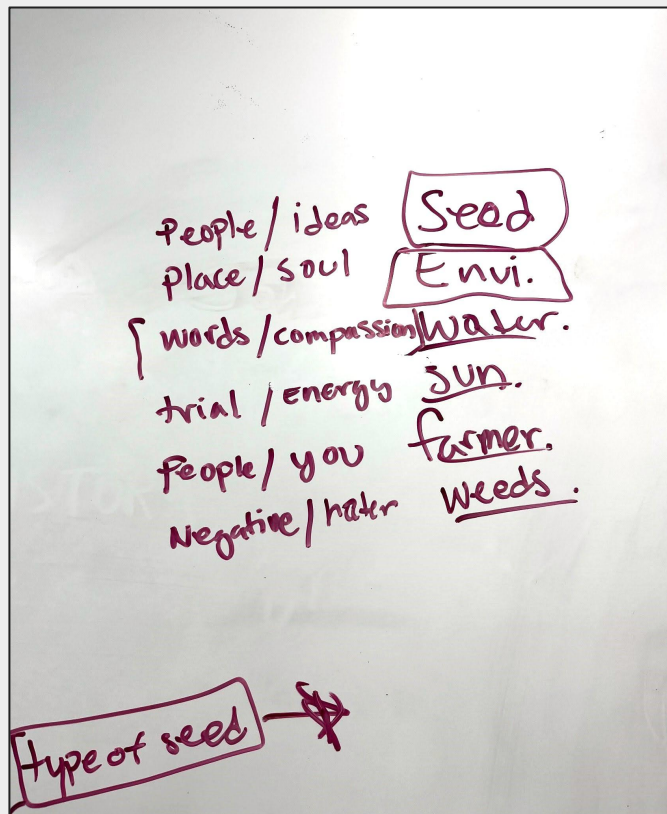 People / ideas Seed
place / soul Envi.
words / compassion / water.
trial / Energy sun.
People / you farmer.
Negative / hater weeds.
type of seed